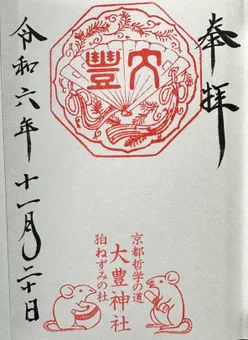 奉拝
大豐
京都哲学の道
大豊神社
狛ねずみの社
令和六年 十一月二十日